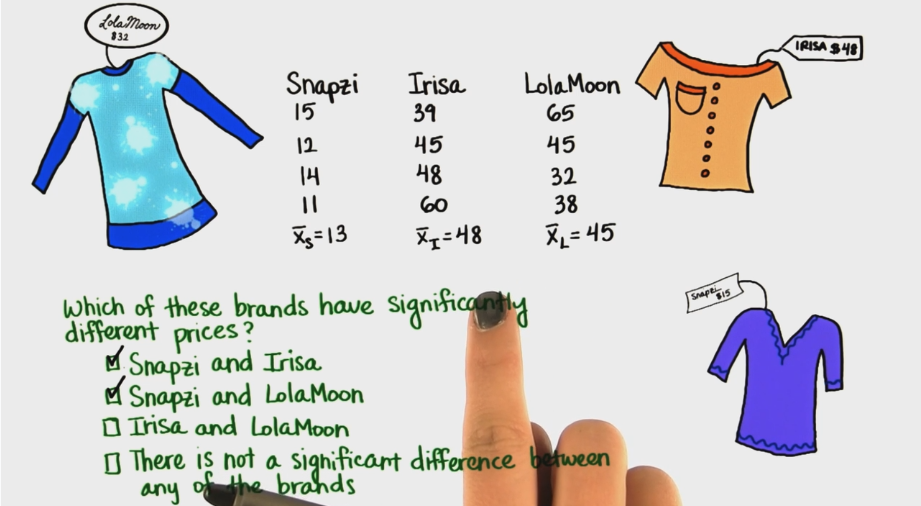 LolaMoon
$32
IRISA $48
Snapzi Irisa LolaMoon
15 39 65
12 45 45
14 48 32
11 60 38
x̄S = 13 x̄I = 48 x̄L = 45
Snapzi
$15
Which of these brands have significantly
different prices?
☑ Snapzi and Irisa
☑ Snapzi and LolaMoon
☐ Irisa and LolaMoon
☐ There is not a significant difference between
any of the brands